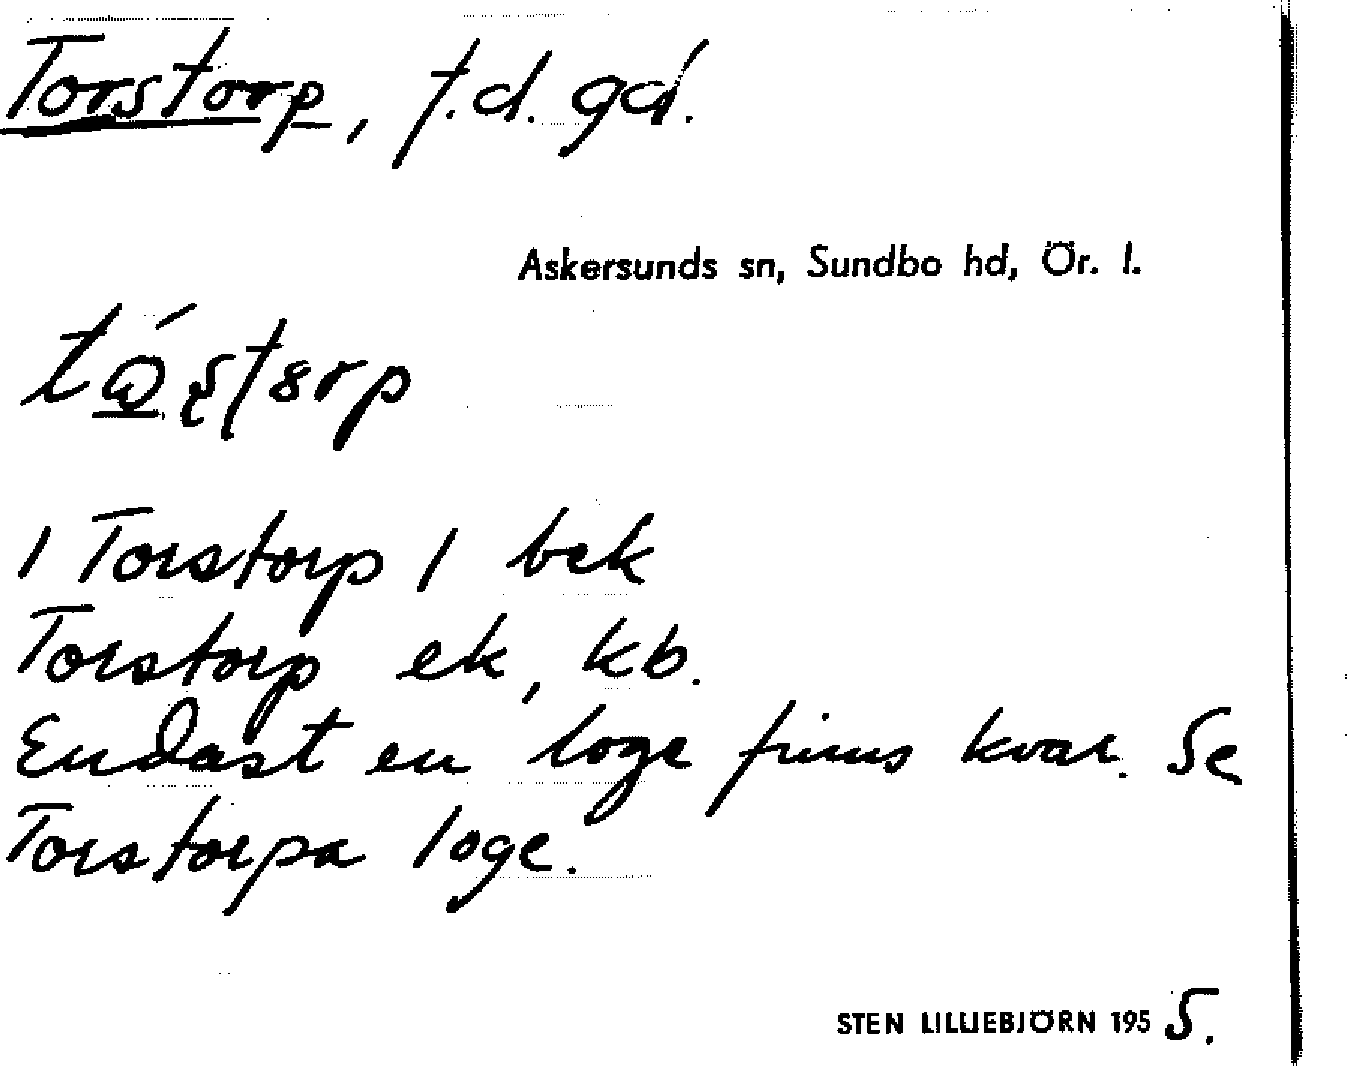 Torstorp, f.d. gd.
Askersunds sn, Sundbo hd, Ör. l.
/Torstorp/ bek
Torstorp ek, kb.
Endast en loge finns kvar. Se
Torstorpa loge.
STEN LILLIEBJÖRN 1955.